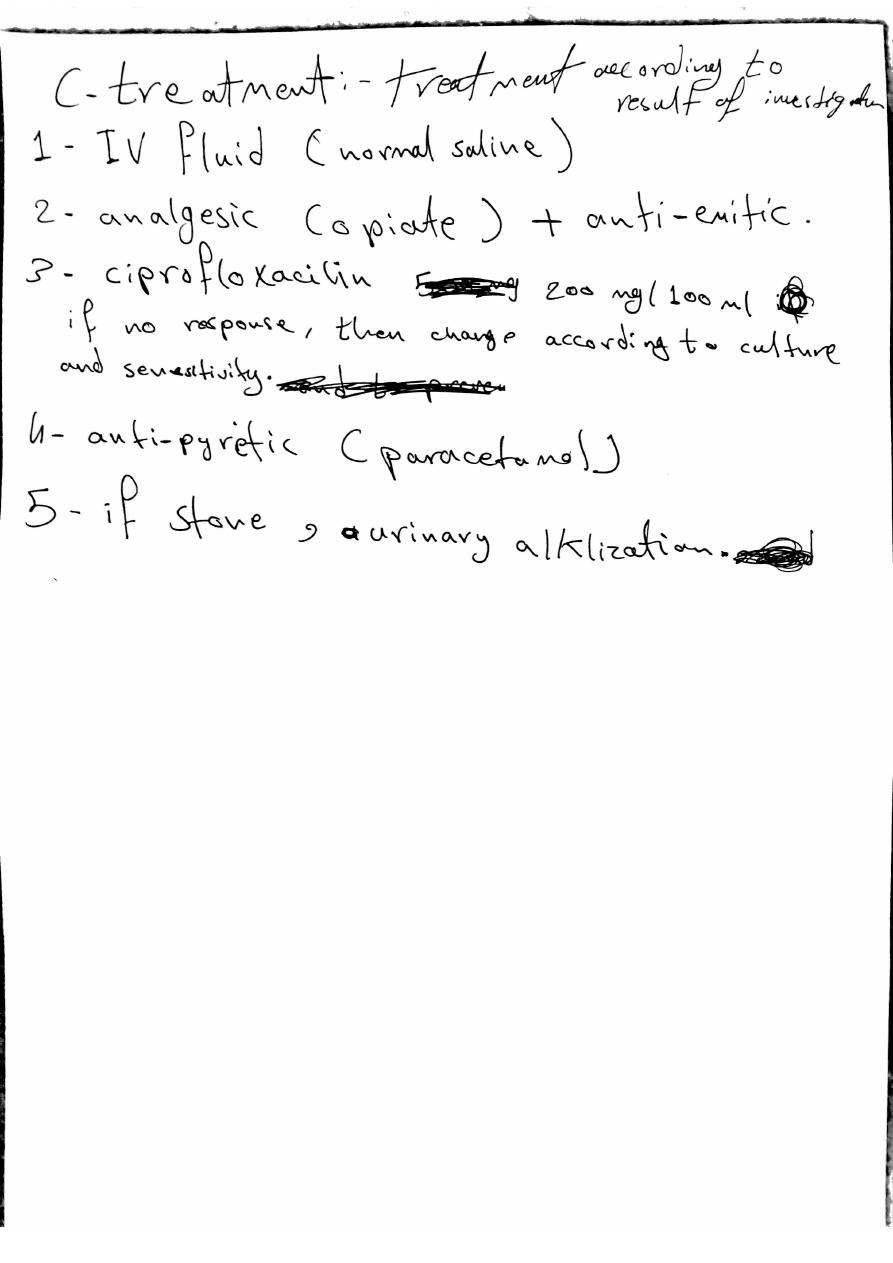 C- treatment:- treatment according to
result of investigation
1- IV fluid (normal saline)
2- analgesic (opiate) + anti-emitic.
3- ciprofloxacilin 200 mg/100 ml
if no response, then change according to culture
and senesitivity.
4- anti-pyretic (paracetamol)
5- if stone, urinary alklization.